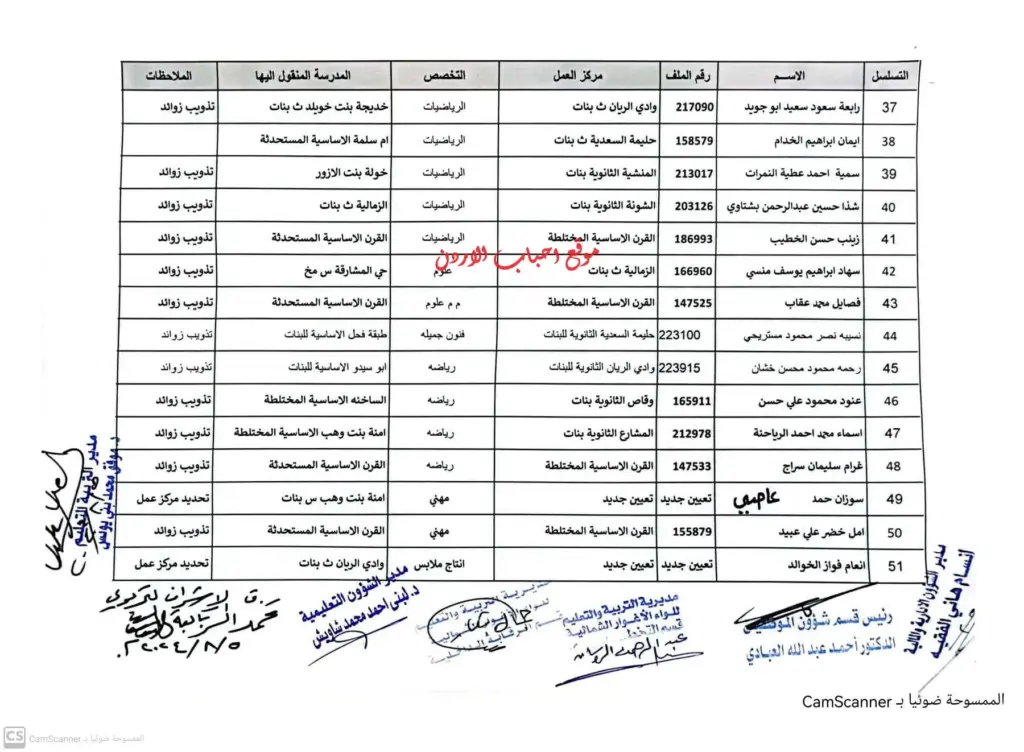 التسلسل الاسم رقم الملف مركز العمل التخصص المدرسة المنقول اليها الملاحظات
37 رابعة سعود سعيد ابو جويد 217090 وادي الريان ث بنات الرياضيات خديجة بنت خويلد ث بنات تذويب زوائد
38 ايمان ابراهيم الخدام 158579 حليمة السعدية ث بنات الرياضيات ام سلمة الاساسية المستحدثة
39 سمية احمد عطية النمرات 213017 المنشية الثانوية بنات الرياضيات خولة بنت الازور تذويب زوائد
40 شذا حسين عبدالرحمن بشتاوي 203126 الشونة الثانوية بنات الرياضيات الزمالية ث بنات تذويب زوائد
41 زينب حسن الخطيب 186993 القرن الاساسية المختلطة الرياضيات القرن الاساسية المستحدثة تذويب زوائد
موقع احباب الاردن
42 سهاد ابراهيم يوسف منسي 166960 الزمالية ث بنات علوم حي المشارقة س مخ تذويب زوائد
43 فصايل محمد عقاب 147525 القرن الاساسية المختلطة م م علوم القرن الاساسية المستحدثة تذويب زوائد
44 نسيبه نصر محمود مستريحي 223100 حليمة السعدية الثانوية للبنات فنون جميله طبقة فحل الاساسية للبنات تذويب زوائد
45 رحمه محمود محسن خشان 223915 وادي الريان الثانوية للبنات رياضه ابو سيدو الاساسية للبنات تذويب زوائد
46 عنود محمود علي حسن 165911 وقاص الثانوية بنات رياضه الساخنه الاساسية المختلطة تذويب زوائد
47 اسماء محمد احمد الرياحنة 212978 المشارع الثانوية بنات رياضه امنة بنت وهب الاساسية المختلطة تذويب زوائد
48 غرام سليمان سراج 147533 القرن الاساسية المختلطة رياضه القرن الاساسية المستحدثة تذويب زوائد
49 سوزان حمد عاصي تعيين جديد تعيين جديد مهني امنة بنت وهب س بنات تحديد مركز عمل
50 امل خضر علي عبيد 155879 القرن الاساسية المختلطة مهني القرن الاساسية المستحدثة تذويب زوائد
51 انعام فواز الخوالد تعيين جديد تعيين جديد انتاج ملابس وادي الريان ث بنات تحديد مركز عمل
مدير التربية والتعليم
د. موفق محمد بني يونس
مدير الشؤون الادارية والمالية
ابتسام هاني الفقيه
رئيس قسم شؤون الموظفين
الدكتور أحمد عبد الله العبادي
مديرية التربية والتعليم
للواء الأغوار الشمالية
قسم التخطيط
مديرية التربية والتعليم
مدير الشؤون التعليمية
د. لبنى احمد محمد شاويش
الممسوحة ضوئيا بـ CamScanner
CS CamScanner الممسوحة ضوئيا بـ